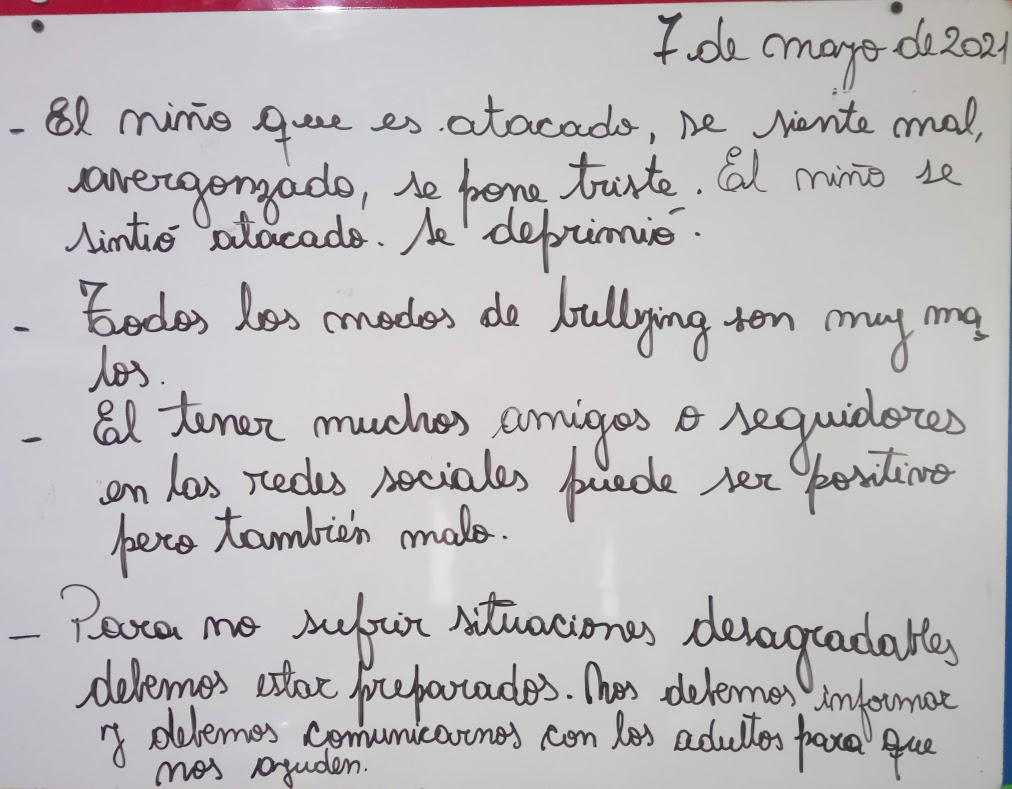 7 de mayo de 2021
- El niño que es atacado, se siente mal,
avergonzado, se pone triste. El niño se
sintió atacado. Se deprimió.
- Todos los modos de bullying son muy ma
los.
- El tener muchos amigos o seguidores
en las redes sociales puede ser positivo
pero también malo.
- Para no sufrir situaciones desagradables
debemos estar preparados. Nos debemos informar
y debemos comunicarnos con los adultos para que
nos ayuden.